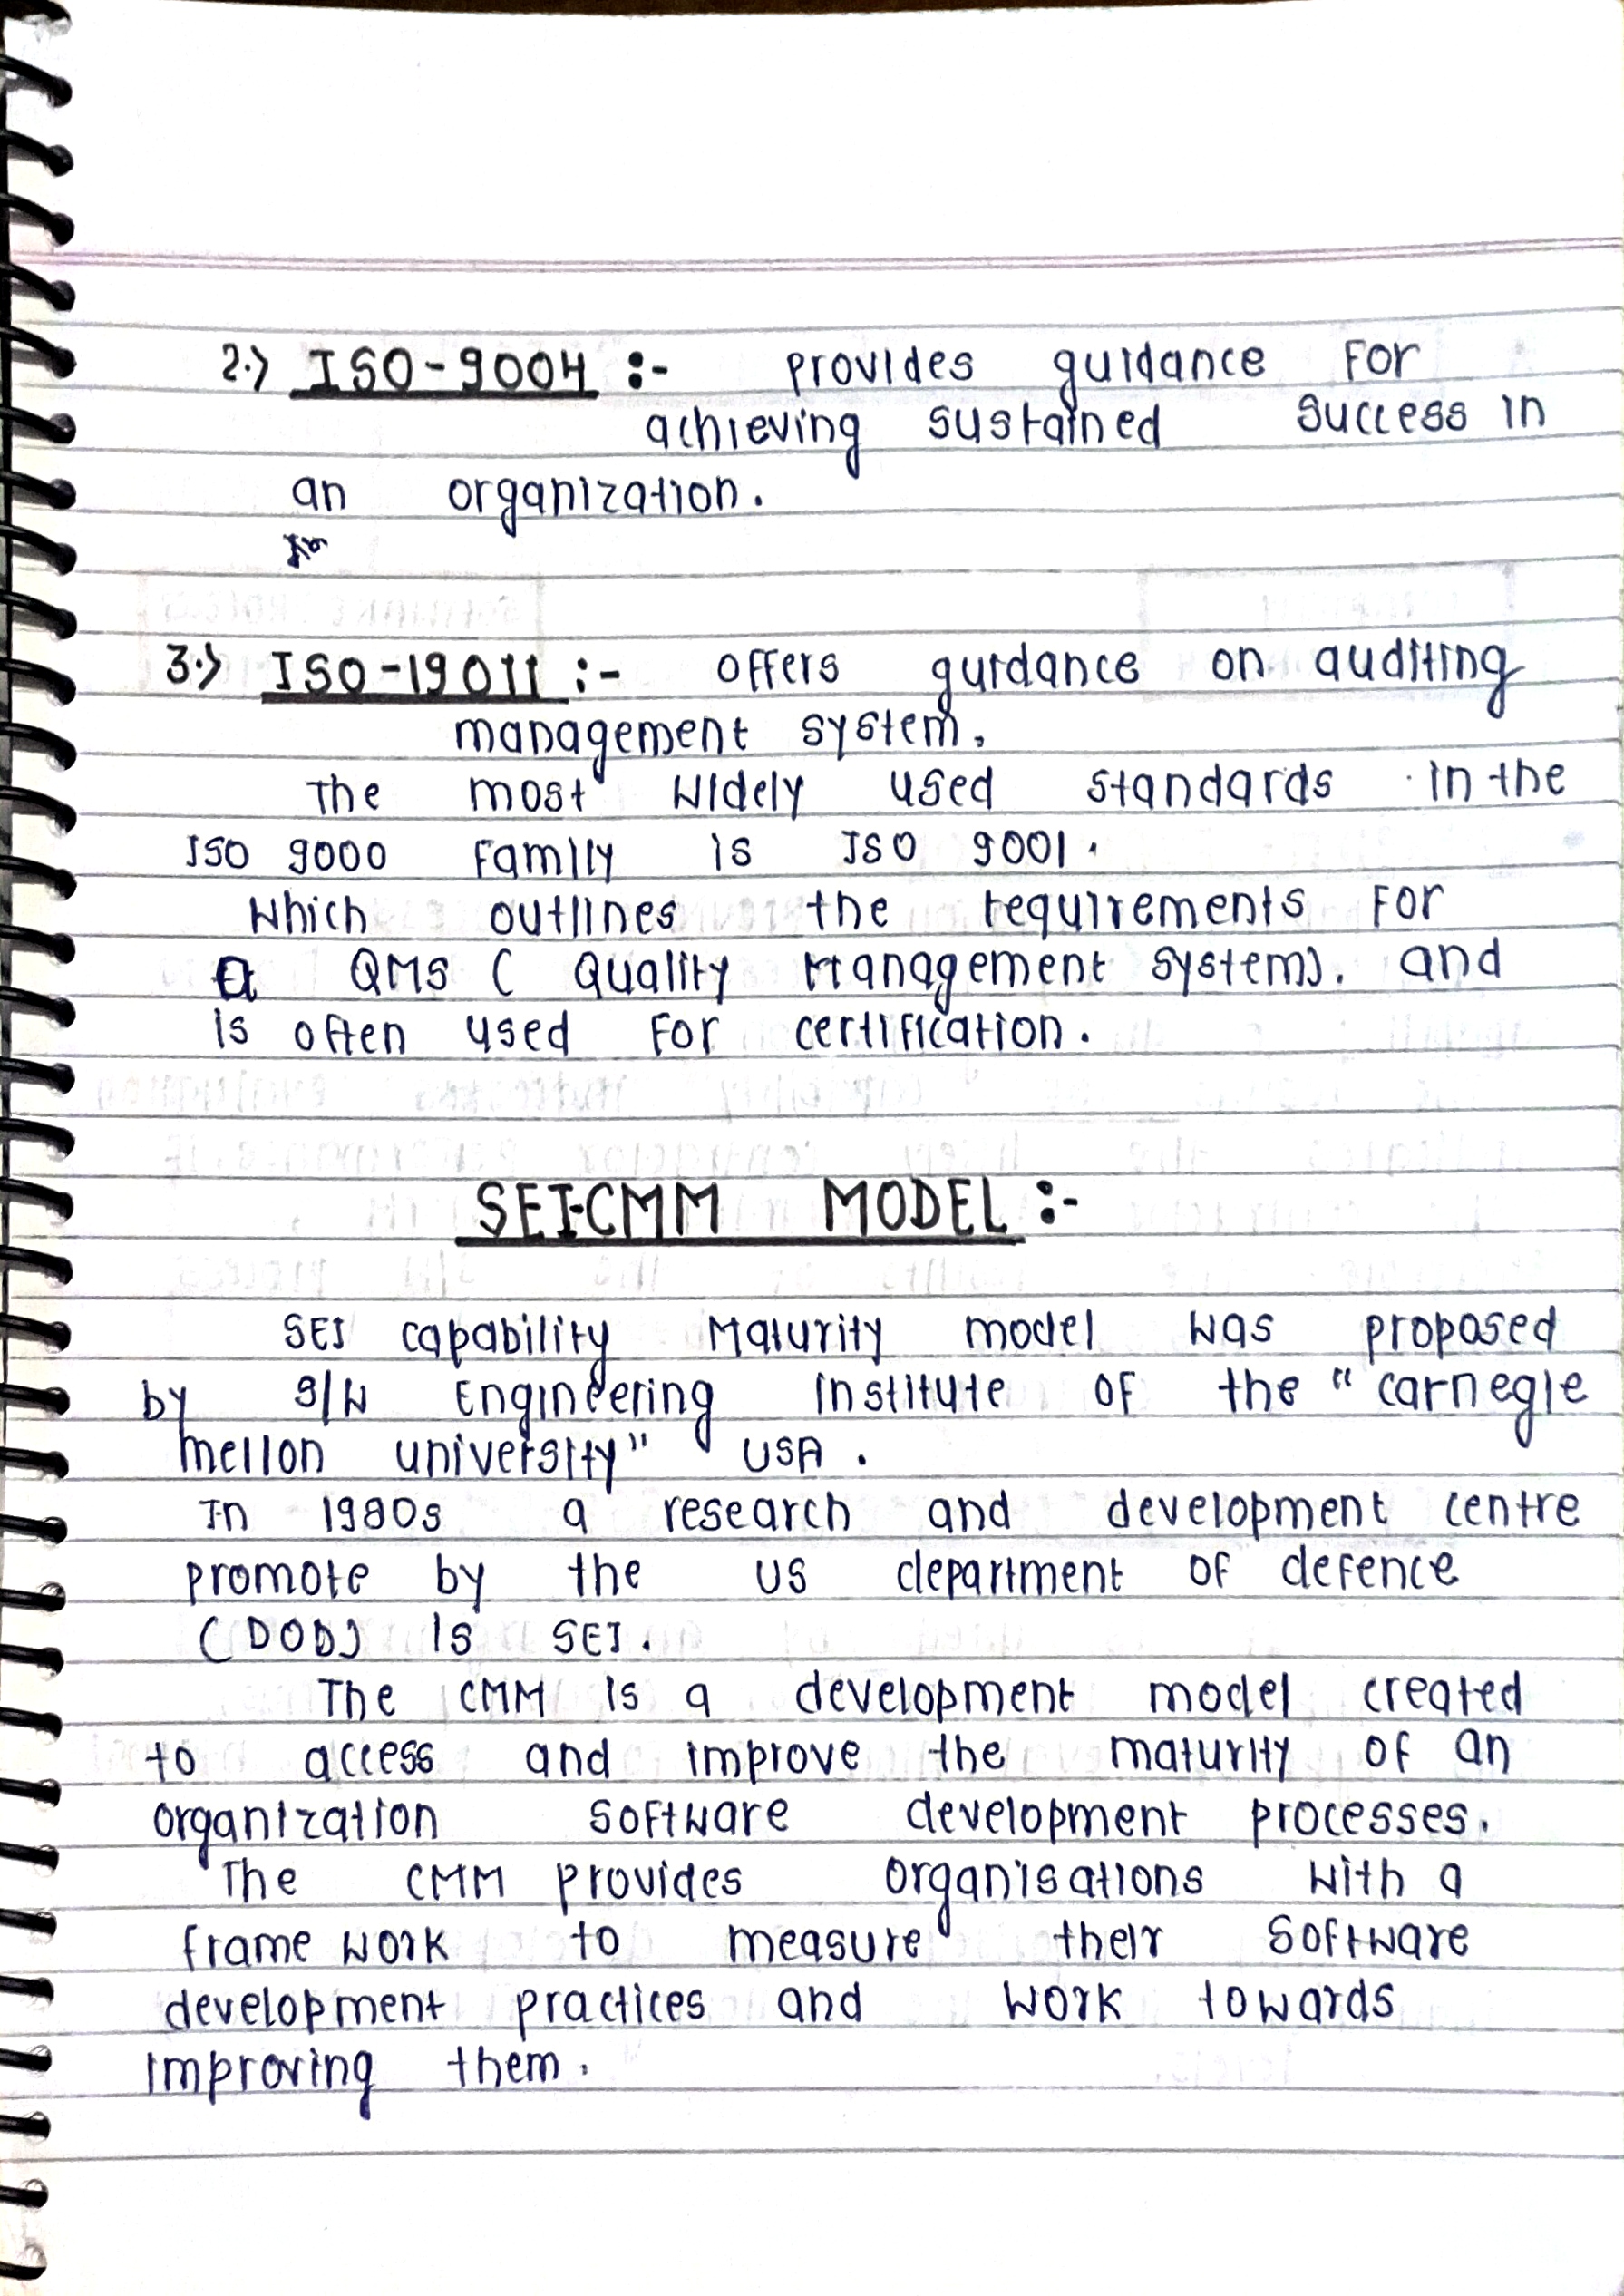 2.) ISO-9004 :- provides guidance for
achieving sustained success in
an organization.
3.) ISO-19011 :- offers guidance on auditing
management system.
The most widely used standards in the
ISO 9000 family is ISO 9001.
Which outlines the requirements for
a QMS ( Quality Management System). and
is often used for certification.
SEI-CMM MODEL :-
SEI capability Maturity model was proposed
by S/W Engineering institute of the "carnegie
mellon university" USA.
In 1980s a research and development centre
promote by the US department of defence
(DOD) is SEI.
The CMM is a development model created
to access and improve the maturity of an
organization software development processes.
The CMM provides organisations with a
frame work to measure their software
development practices and work towards
improving them.